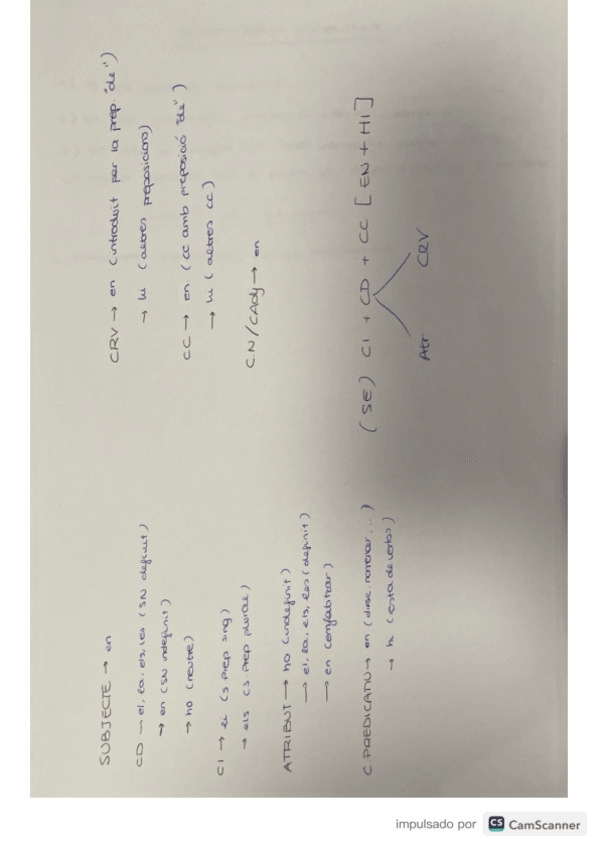 SUBJECTE → en
CD → el, la, els, les (SN definit)
→ en (SN indefinit)
→ ho (neutre)
CI → li (S Prep sing)
→ els (S Prep plural)
ATRIBUT → ho (indefinit)
→ el, la, els, les (definit)
→ en (emfatitzar)
C PREDICATIU → en (dir-se, nomenar...)
→ hi (resta de verbs)
CRV → en (introduït per la prep. "de")
→ hi (altres preposicions)
CC → en (CC amb preposició "de")
→ hi (altres CC)
C.N / CAdj → en
(SE) CI + CD + CC [EN + HI]
Atr CRV
impulsado por CS CamScanner